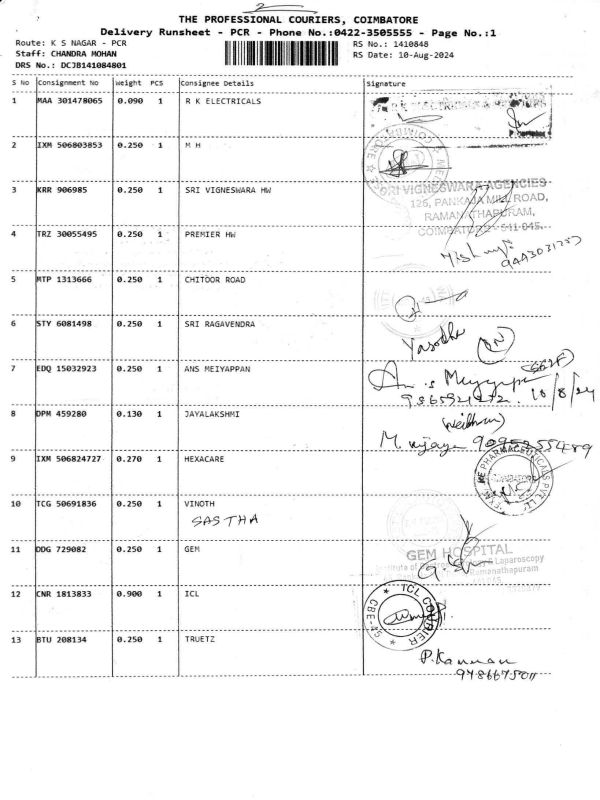 2
THE PROFESSIONAL COURIERS, COIMBATORE
Delivery Runsheet - PCR - Phone No.:0422-3505555 - Page No.:1
Route: K S NAGAR - PCR
RS No.: 1410848
Staff: CHANDRA MOHAN
RS Date: 10-Aug-2024
DRS No.: DCJB141084801
S No Consignment No Weight PCS Consignee Details Signature
1 MAA 301478065 0.090 1 R K ELECTRICALS
2 IXM 506803853 0.250 1 M H
3 KRR 906985 0.250 1 SRI VIGNESWARA HW
SRI VIGNESWARA AGENCIES
126, PANKAJA MILL ROAD,
RAMANATHAPURAM,
COIMBATORE - 641 045.
4 TRZ 30055495 0.250 1 PREMIER HW
5 MTP 1313666 0.250 1 CHITOOR ROAD
6 STY 6081498 0.250 1 SRI RAGAVENDRA
Yasodha
7 EDQ 15032923 0.250 1 ANS MEIYAPPAN
10/8/24
8 DPM 459280 0.130 1 JAYALAKSHMI
9 IXM 506824727 0.270 1 HEXACARE
10 TCG 50691836 0.250 1 VINOTH
SASTHA
11 DDG 729082 0.250 1 GEM
GEM HOSPITAL
Laparoscopy
Ramanathapuram
12 CNR 1813833 0.900 1 ICL
TCL COURIER
CBE-45
13 BTU 208134 0.250 1 TRUETZ
P. Kannan
9786675011